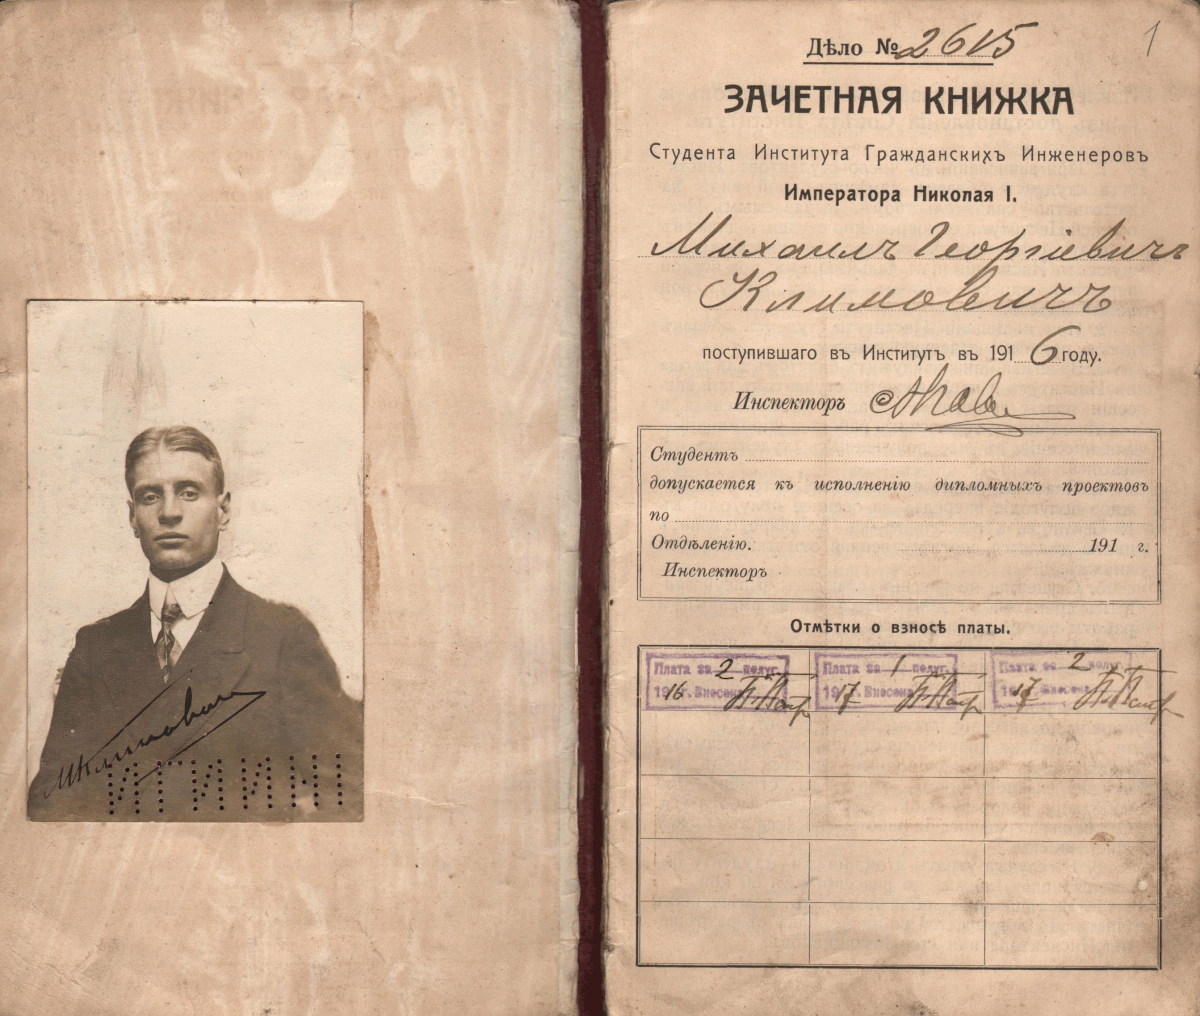 МКлимович
ИГИИНІ
1
Дѣло № 2615
ЗАЧЕТНАЯ КНИЖКА
Студента Института Гражданскихъ Инженеровъ
Императора Николая I.
Михаилъ Георгіевичъ
Климовичъ
поступившаго въ Институтъ въ 1916 году.
Инспекторъ
Студентъ
допускается къ исполненію дипломныхъ проектовъ
по
Отдѣленію. 191 г.
Инспекторъ
Отмѣтки о взносѣ платы.
Плата за 2 полуг. Плата за 1 полуг. Плата за 2 полуг.
1916 г. Внесена 1917 г. Внесена 1917 г. Внесена